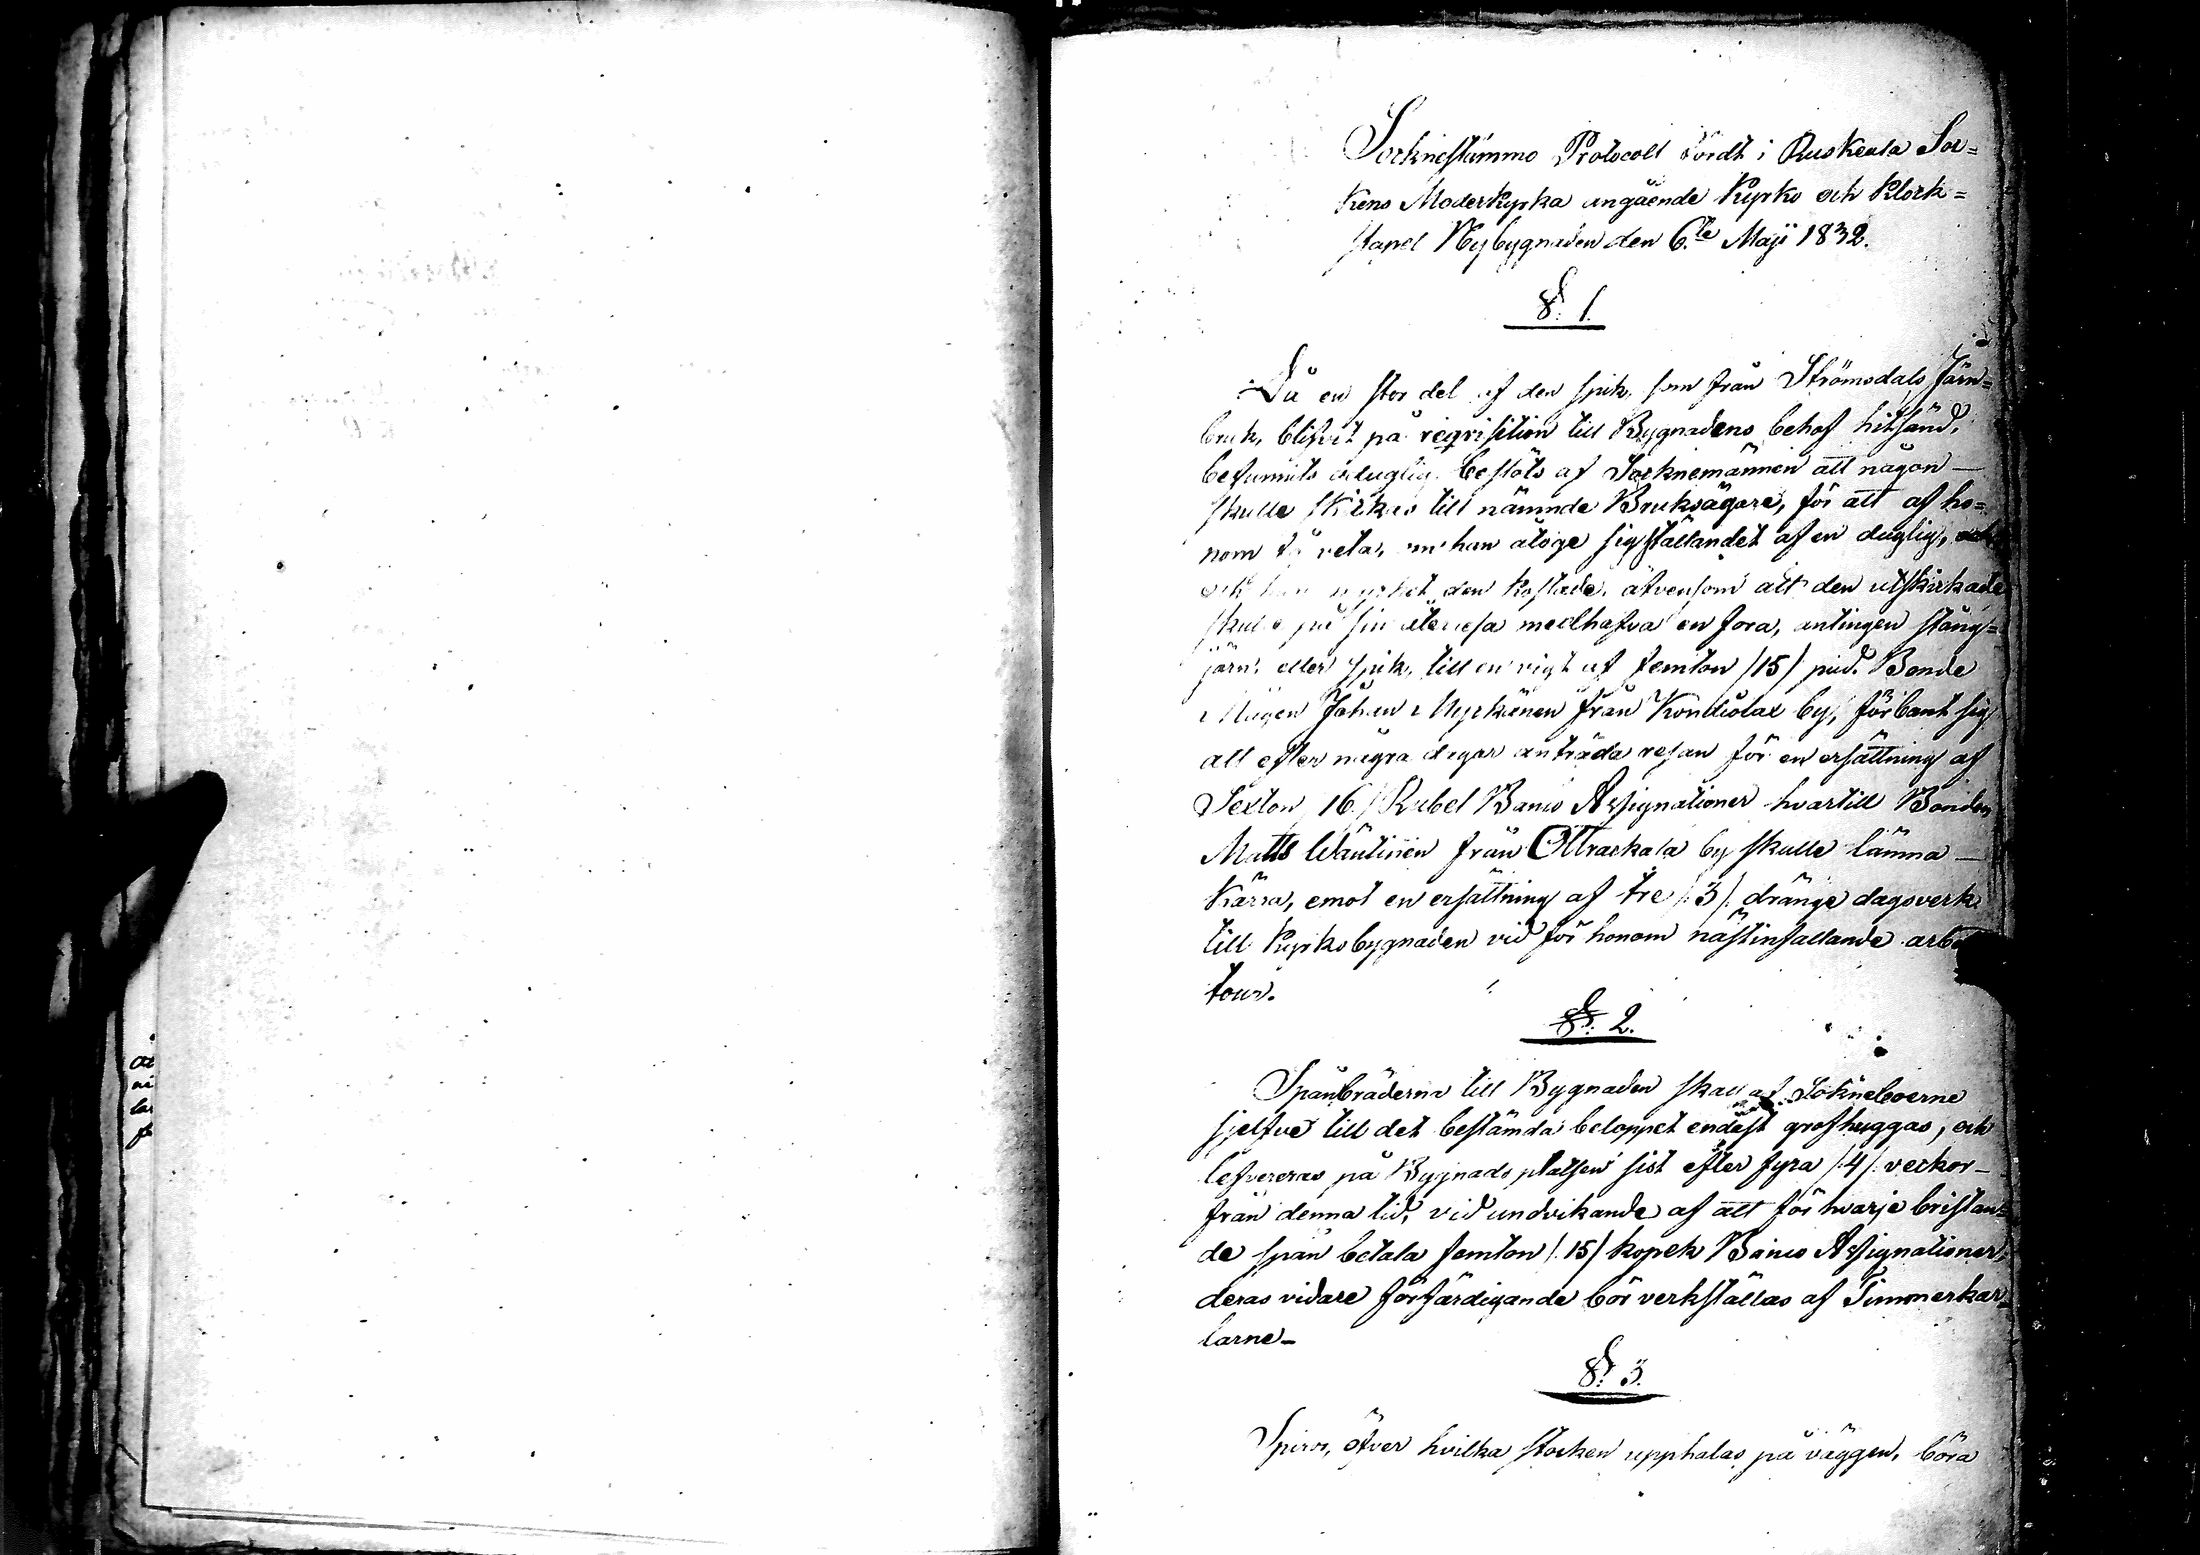 Sorknestämmo Protocoll fördt i Ruskeala Sor=
kens Moderkyrka angående Kyrko och Klock=
stapel Nybygnaden den 6.te Maji 1832.
§. 1.
Då en stor del af den spik, som från Strömsdals Järn=
bruk, blifvit på reqvisition till Bygnadens behof hitsänd,
befunnits oduglig, beslöts af Sorknemännen att någon
skulle skickas till nämnde Bruksägare, för att af ho=
nom få veta, om han åtoge sig ställandet af en duglig,
och huru mycket den kostade, äfvensom att den utskickade
skulle på sin återresa medhafva en fora, antingen stång=
järn, eller spik, till en vigt af femton /15/ pud. Bonde
Mågen Johan Myrkänen från Kondiolax by, förbant sig
att efter några dagar anträda resan för en ersättning af
Sexton /16/ Rubel Banco Assignationer hvartill Bonden
Matts Wäntinen från Ottrackala by skulle lämna
Kärra, emot en ersättning af tre /:3/: dränge dagsverk
till Kyrkobygnaden vid för honom nästinfallande
tour.
§. 2.
Spånbräderna till Bygnaden skall af Sokneboerne
sjelfve till det bestämda beloppet endast grofhuggas, och
lefvereras på Bygnadsplatsen sist efter fyra /:4/: veckor
från denna tid, vid undvikande af att för hvarje bristan=
de spån betala femton /:15/ kopek Banco Assignationer,
deras vidare förfärdigande bör verkställas af Timmerkar=
larne
§. 3.
Spiror, öfver hvilka stocken upphalas på väggen, böra